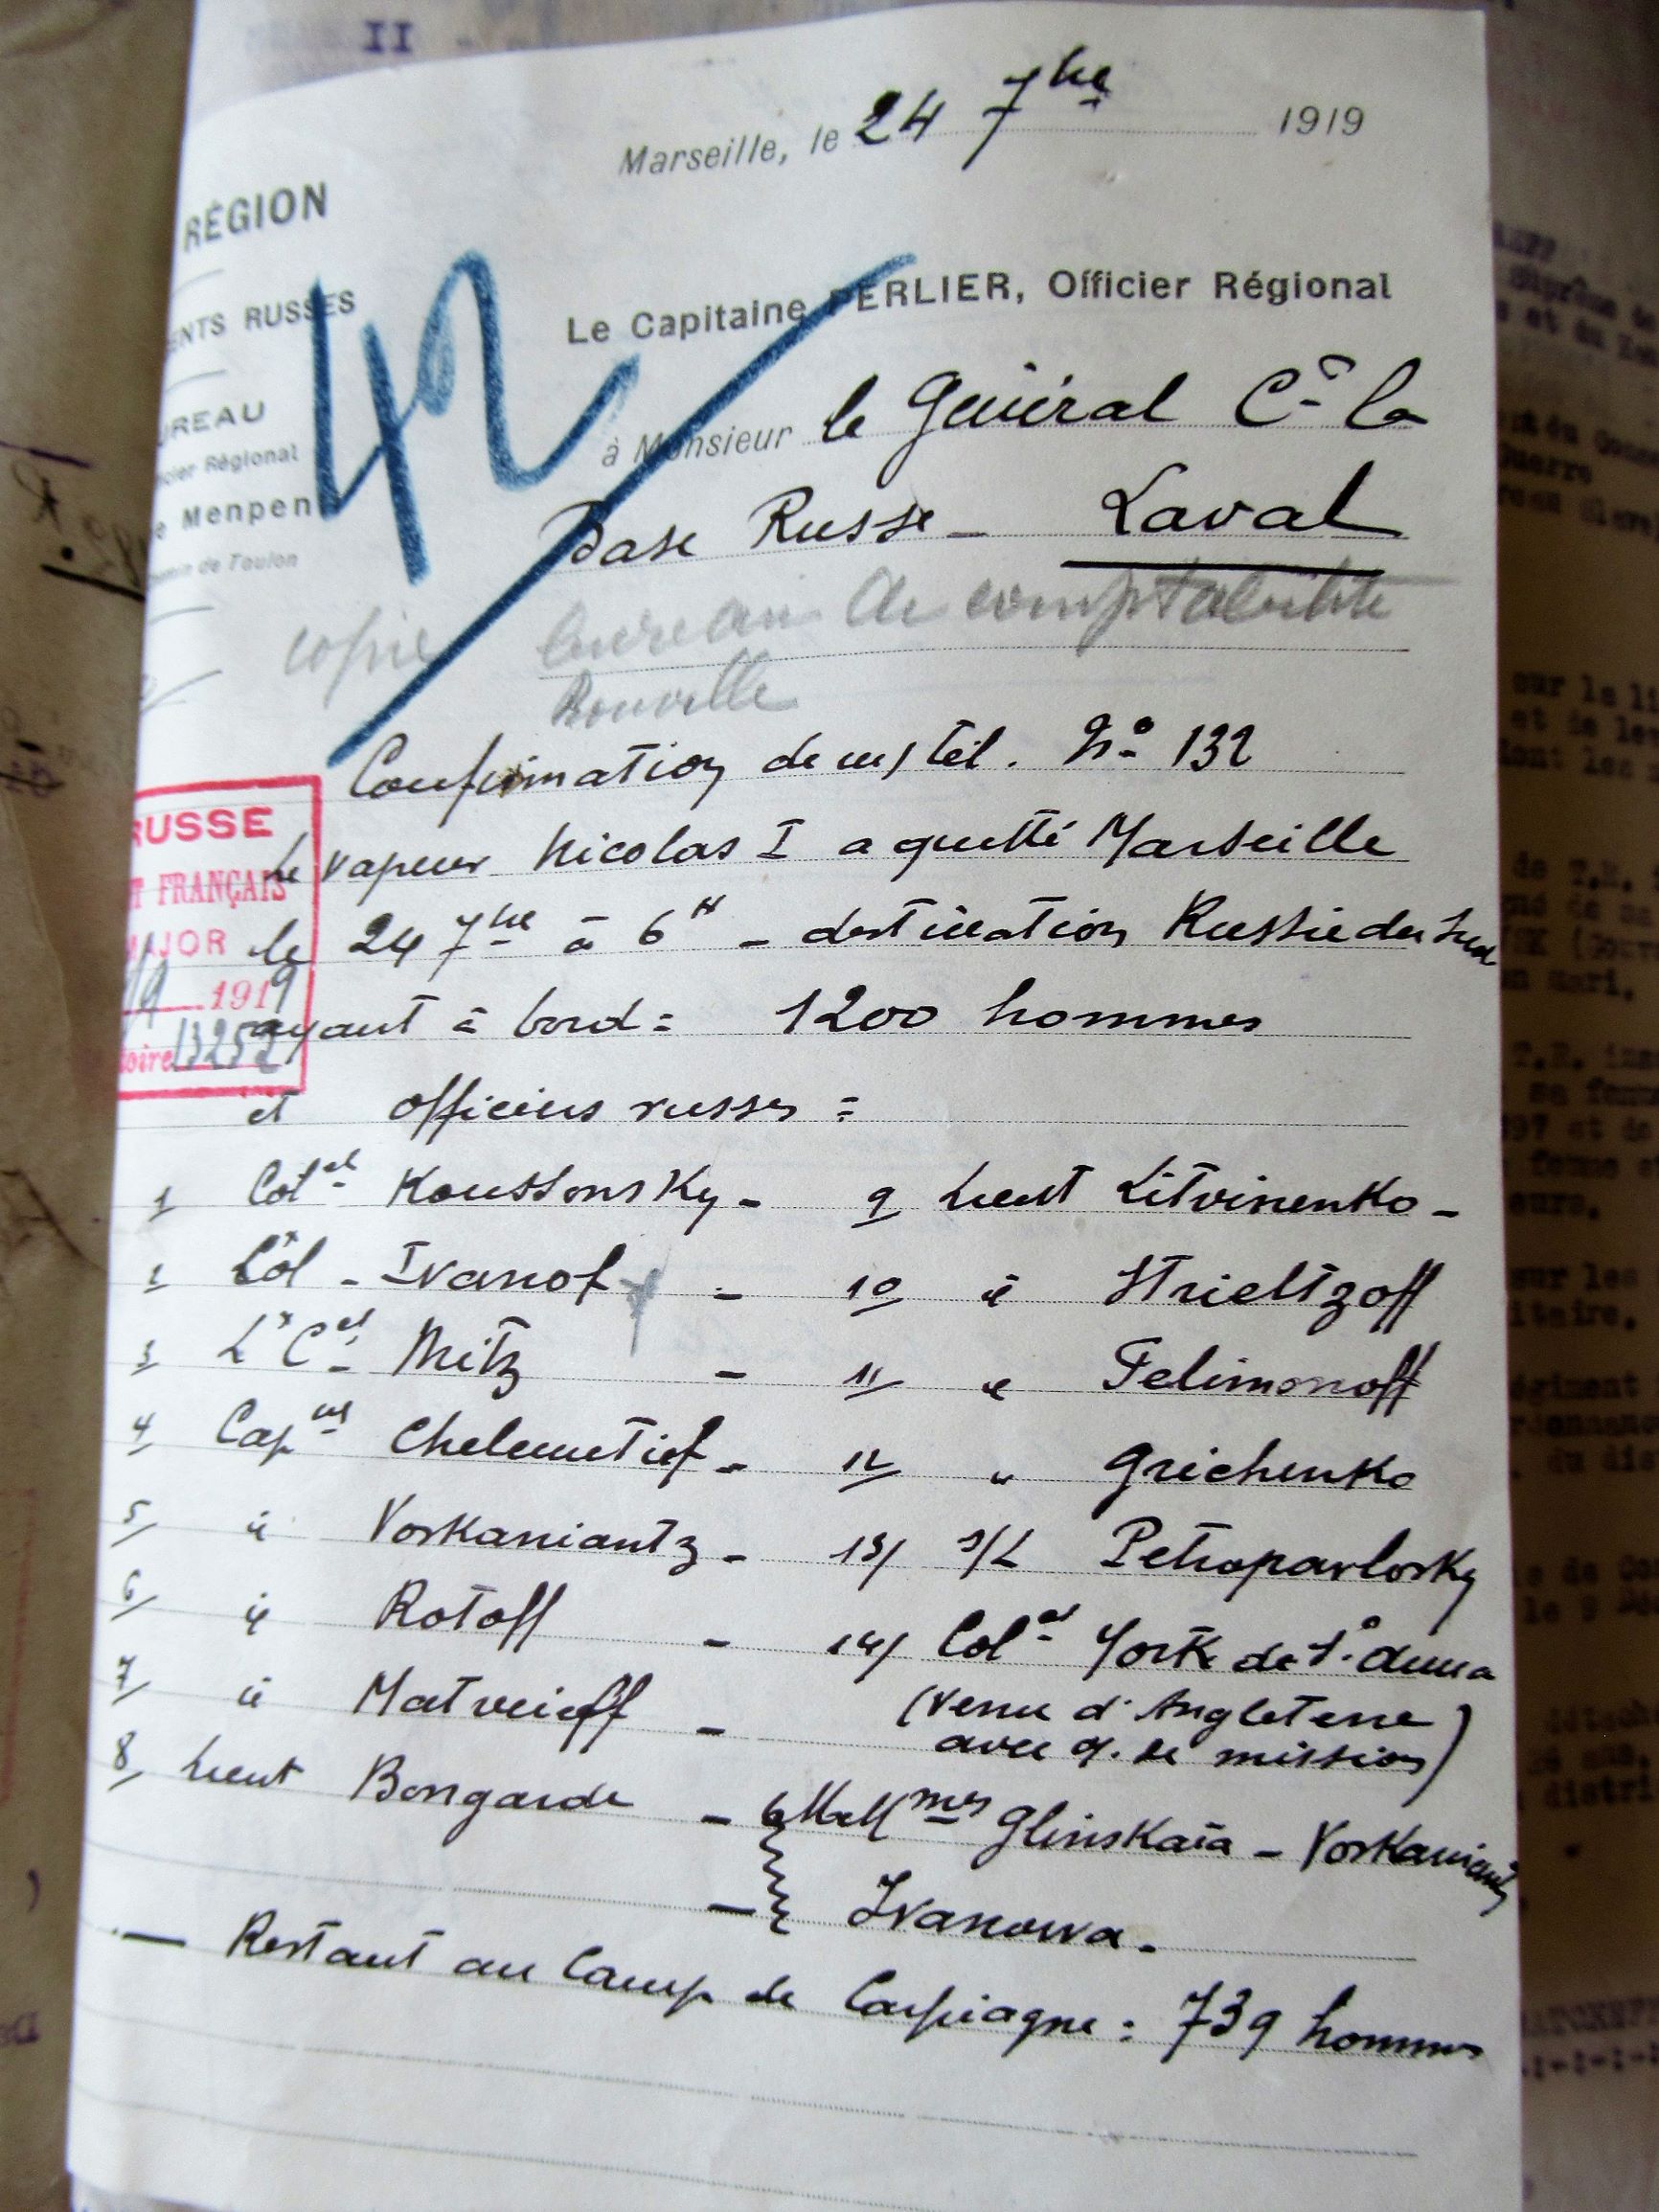 II
Marseille, le 24 7bre 1919
RÉGION
ENTS RUSSES
UREAU
cier Régional
e Menpen
emin de Toulon
42
Le Capitaine PERLIER, Officier Régional
à Monsieur le Général Ct la
Base Russe - Laval
copie bureau de comptabilité
Confirmation de mes tél. No 132
Le vapeur Nicolas I a quitté Marseille
le 24 7bre à 6H - destination Russie du Sud
ayant à bord = 1200 hommes
et officiers russes =
RUSSE
T FRANÇAIS
AJOR
/9 1919
toire 13252
1 Colel Koussonsky - 9 Lieut Litvinenko -
2 Col - Ivanof - 10 id Strieltzoff
3 Lt Cel Mitz - 11/ id Felimonoff
4 Capnes Chelemetief - 12 " Grichenko
5/ id Vorkaniantz - 13/ S/L Petropavlosky
6/ id Rotoff - 14/ Colel York de St Anna
7/ id Matveieff - (venu d'Angleterre
avec o. de mission)
8/ Lieut Bongarde - MM mes Glinskaïa - Vorkaniantz
- Ivanowa.
— Restant au Camp de Carpiagne : 739 hommes